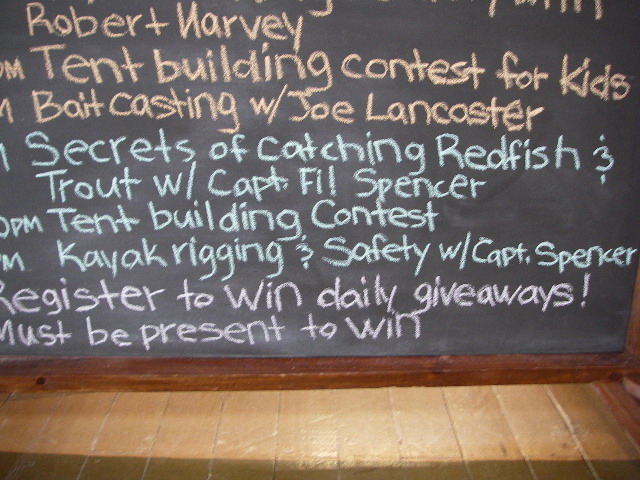 Robert Harvey
PM Tent building contest for kids
M Bait casting w/Joe Lancaster
Secrets of catching Redfish &
Trout w/ Capt. Fil Spencer
0PM Tent building Contest
PM Kayak rigging & Safety w/Capt. Spencer
Register to win daily giveaways!
Must be present to win